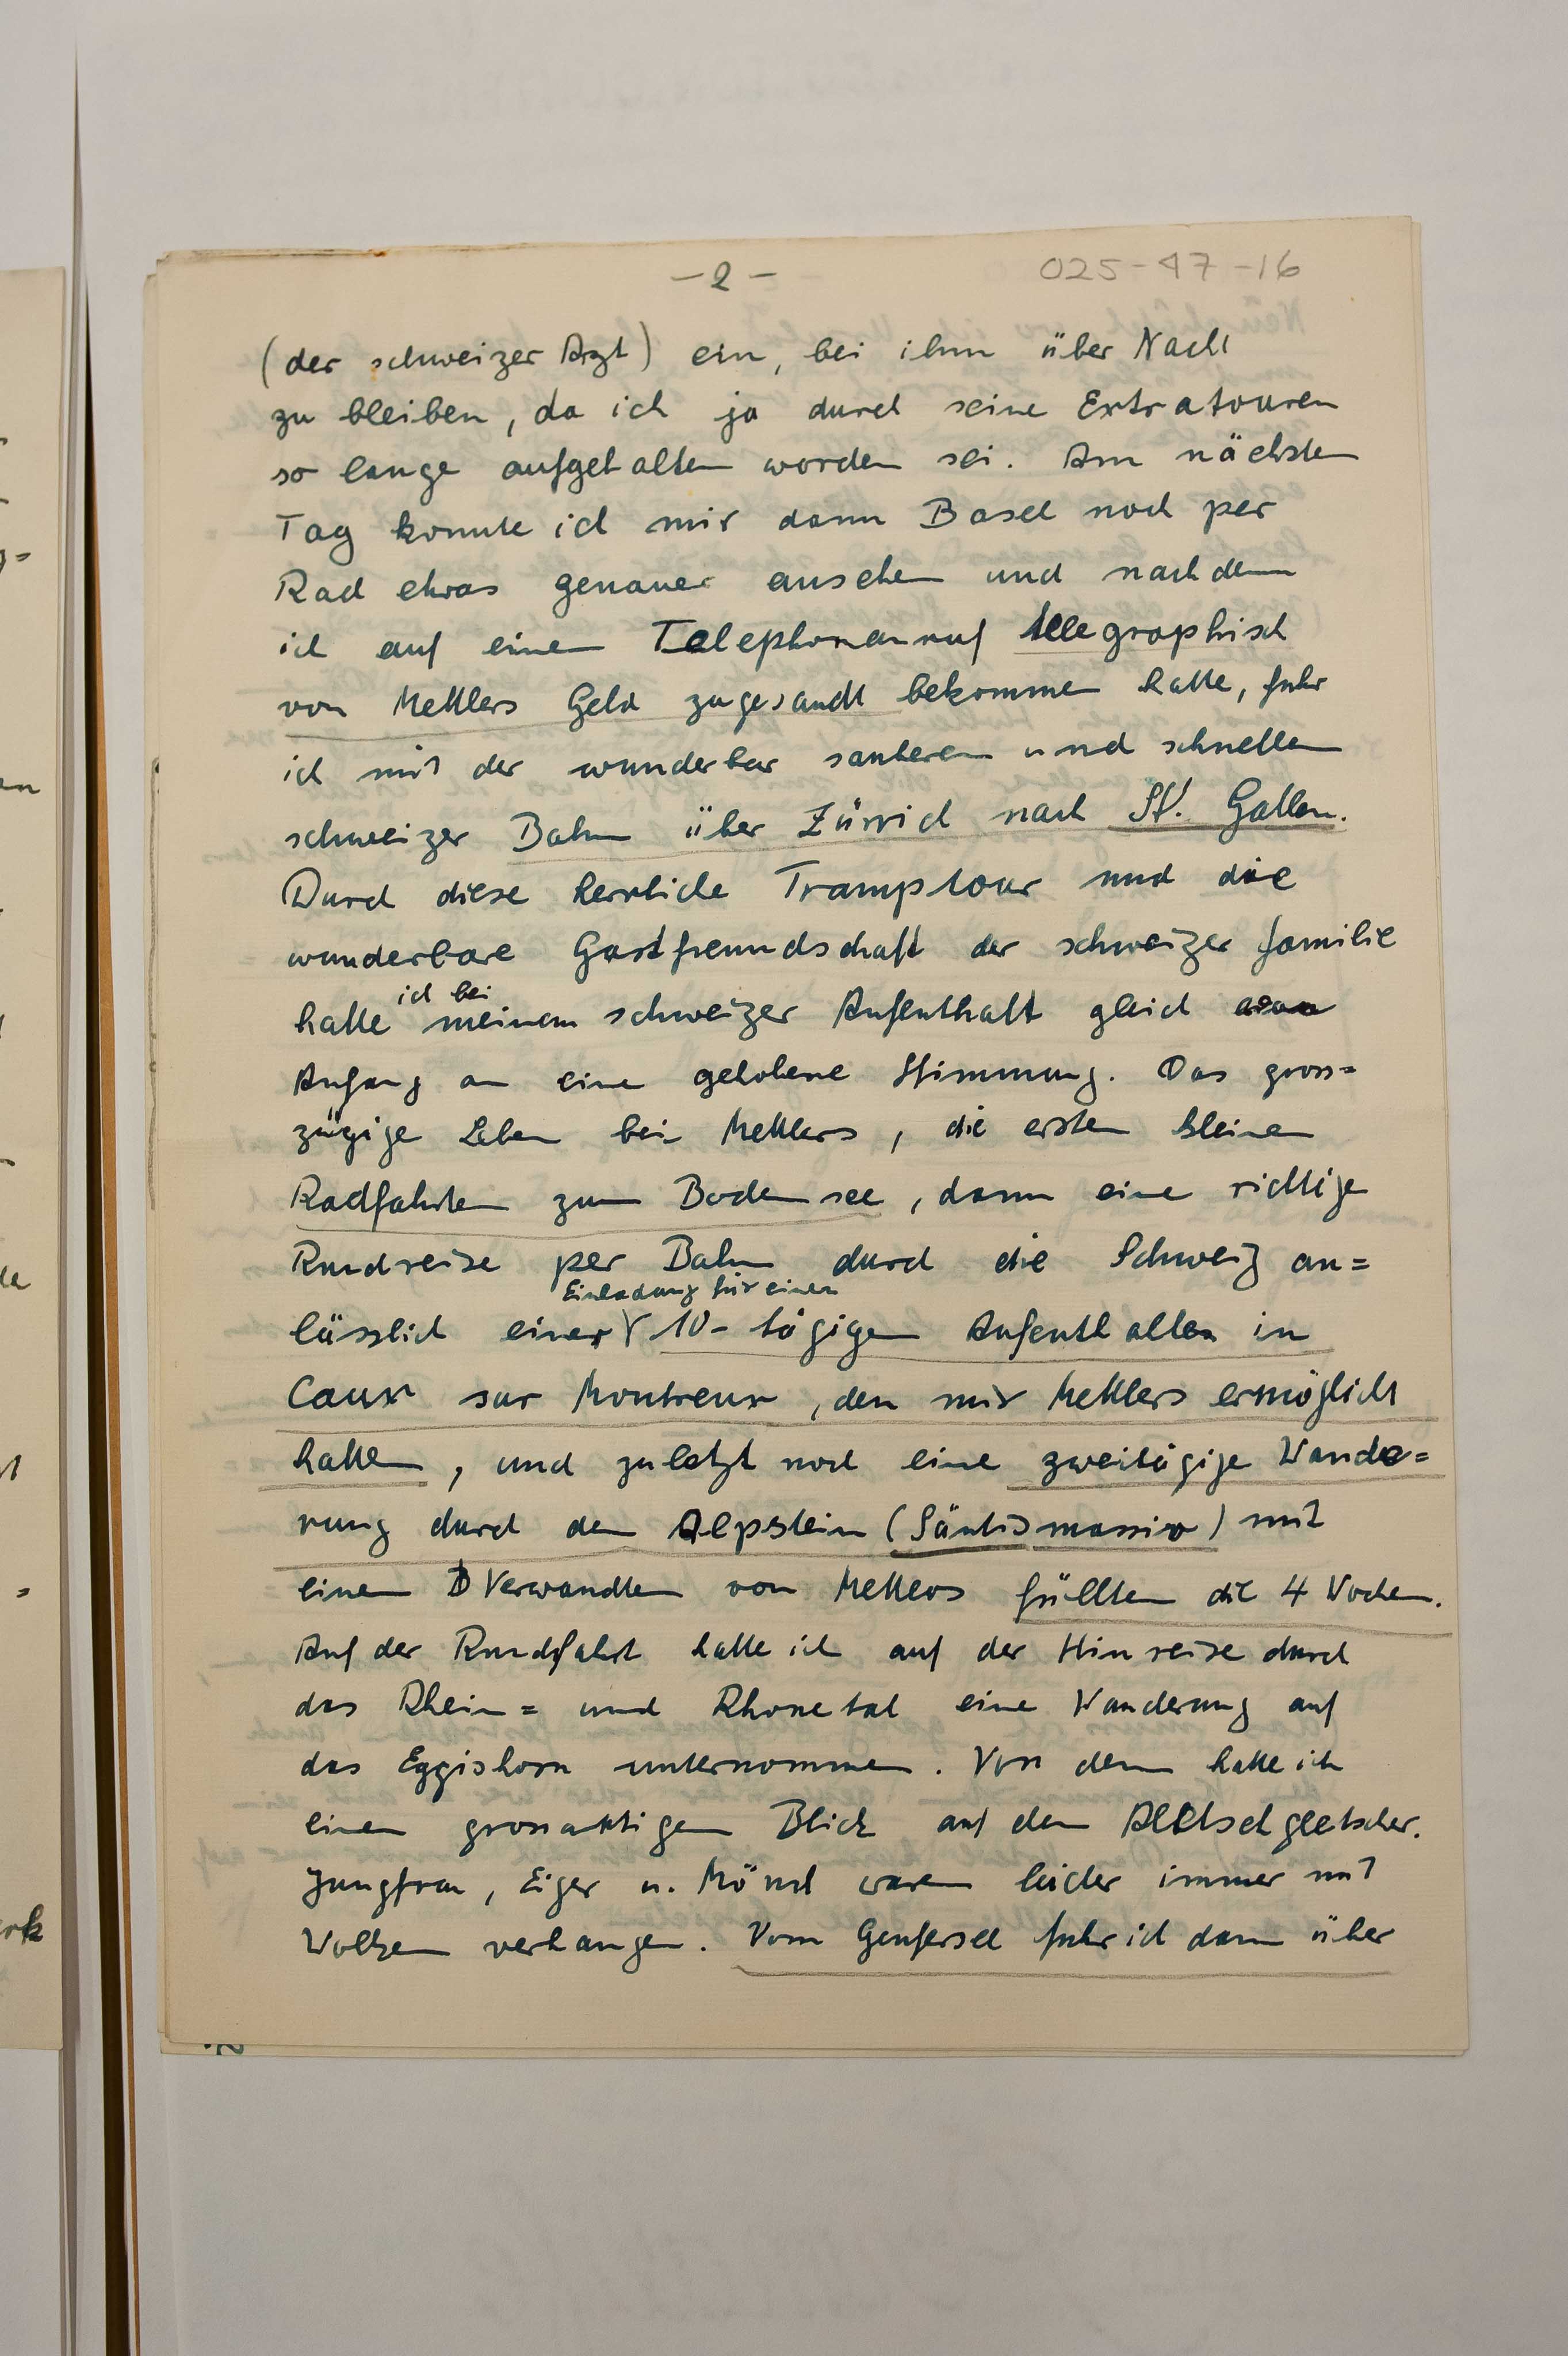 - 2 -
025-47-16
(der schweizer Arzt) ein, bei ihm über Nacht
zu bleiben, da ich ja durch seine Extratouren
so lange aufgehalten worden sei. Am nächsten
Tag konnte ich mir dann Basel noch per
Rad etwas genauer ansehen und nachdem
ich auf einen Telephonanruf telegraphisch
von Mettlers Geld zugesandt bekommen hatte, fuhr
ich mit der wunderbar sauberen und schnellen
schweizer Bahn über Zürrich nach St. Gallen.
Durch diese herrliche Tramptour und die
wunderbare Gastfreundschaft der schweizer Familie
hatte ich bei meinem schweizer Aufenthalt gleich von
Anfang an eine gehobene Stimmung. Das gross=
zügige Leben bei Mettlers, die ersten kleinen
Radfahrten zum Bodensee, dann eine richtige
Rundreise per Bahn durch die Schweiz an=
lässlich einer Einladung für einen 10-tägigen Aufenthalten in
Caux sur Montreux, den mir Mettlers ermöglicht
hatten, und zuletzt noch eine zweitägige Wande=
rung durch den Alpstein (Säntismassiv) mit
einem Verwandten von Mettlers füllten die 4 Wochen.
Auf der Rundfahrt hatte ich auf der Hinreise durch
das Rhein= und Rhonetal eine Wanderung auf
das Eggishorn unternommen. Von dem hatte ich
einen grossartigen Blick auf den Aletschgletscher.
Jungfrau, Eiger u. Mönch waren leider immer mit
Wolken verhangen. Vom Genfersee fuhr ich dann über